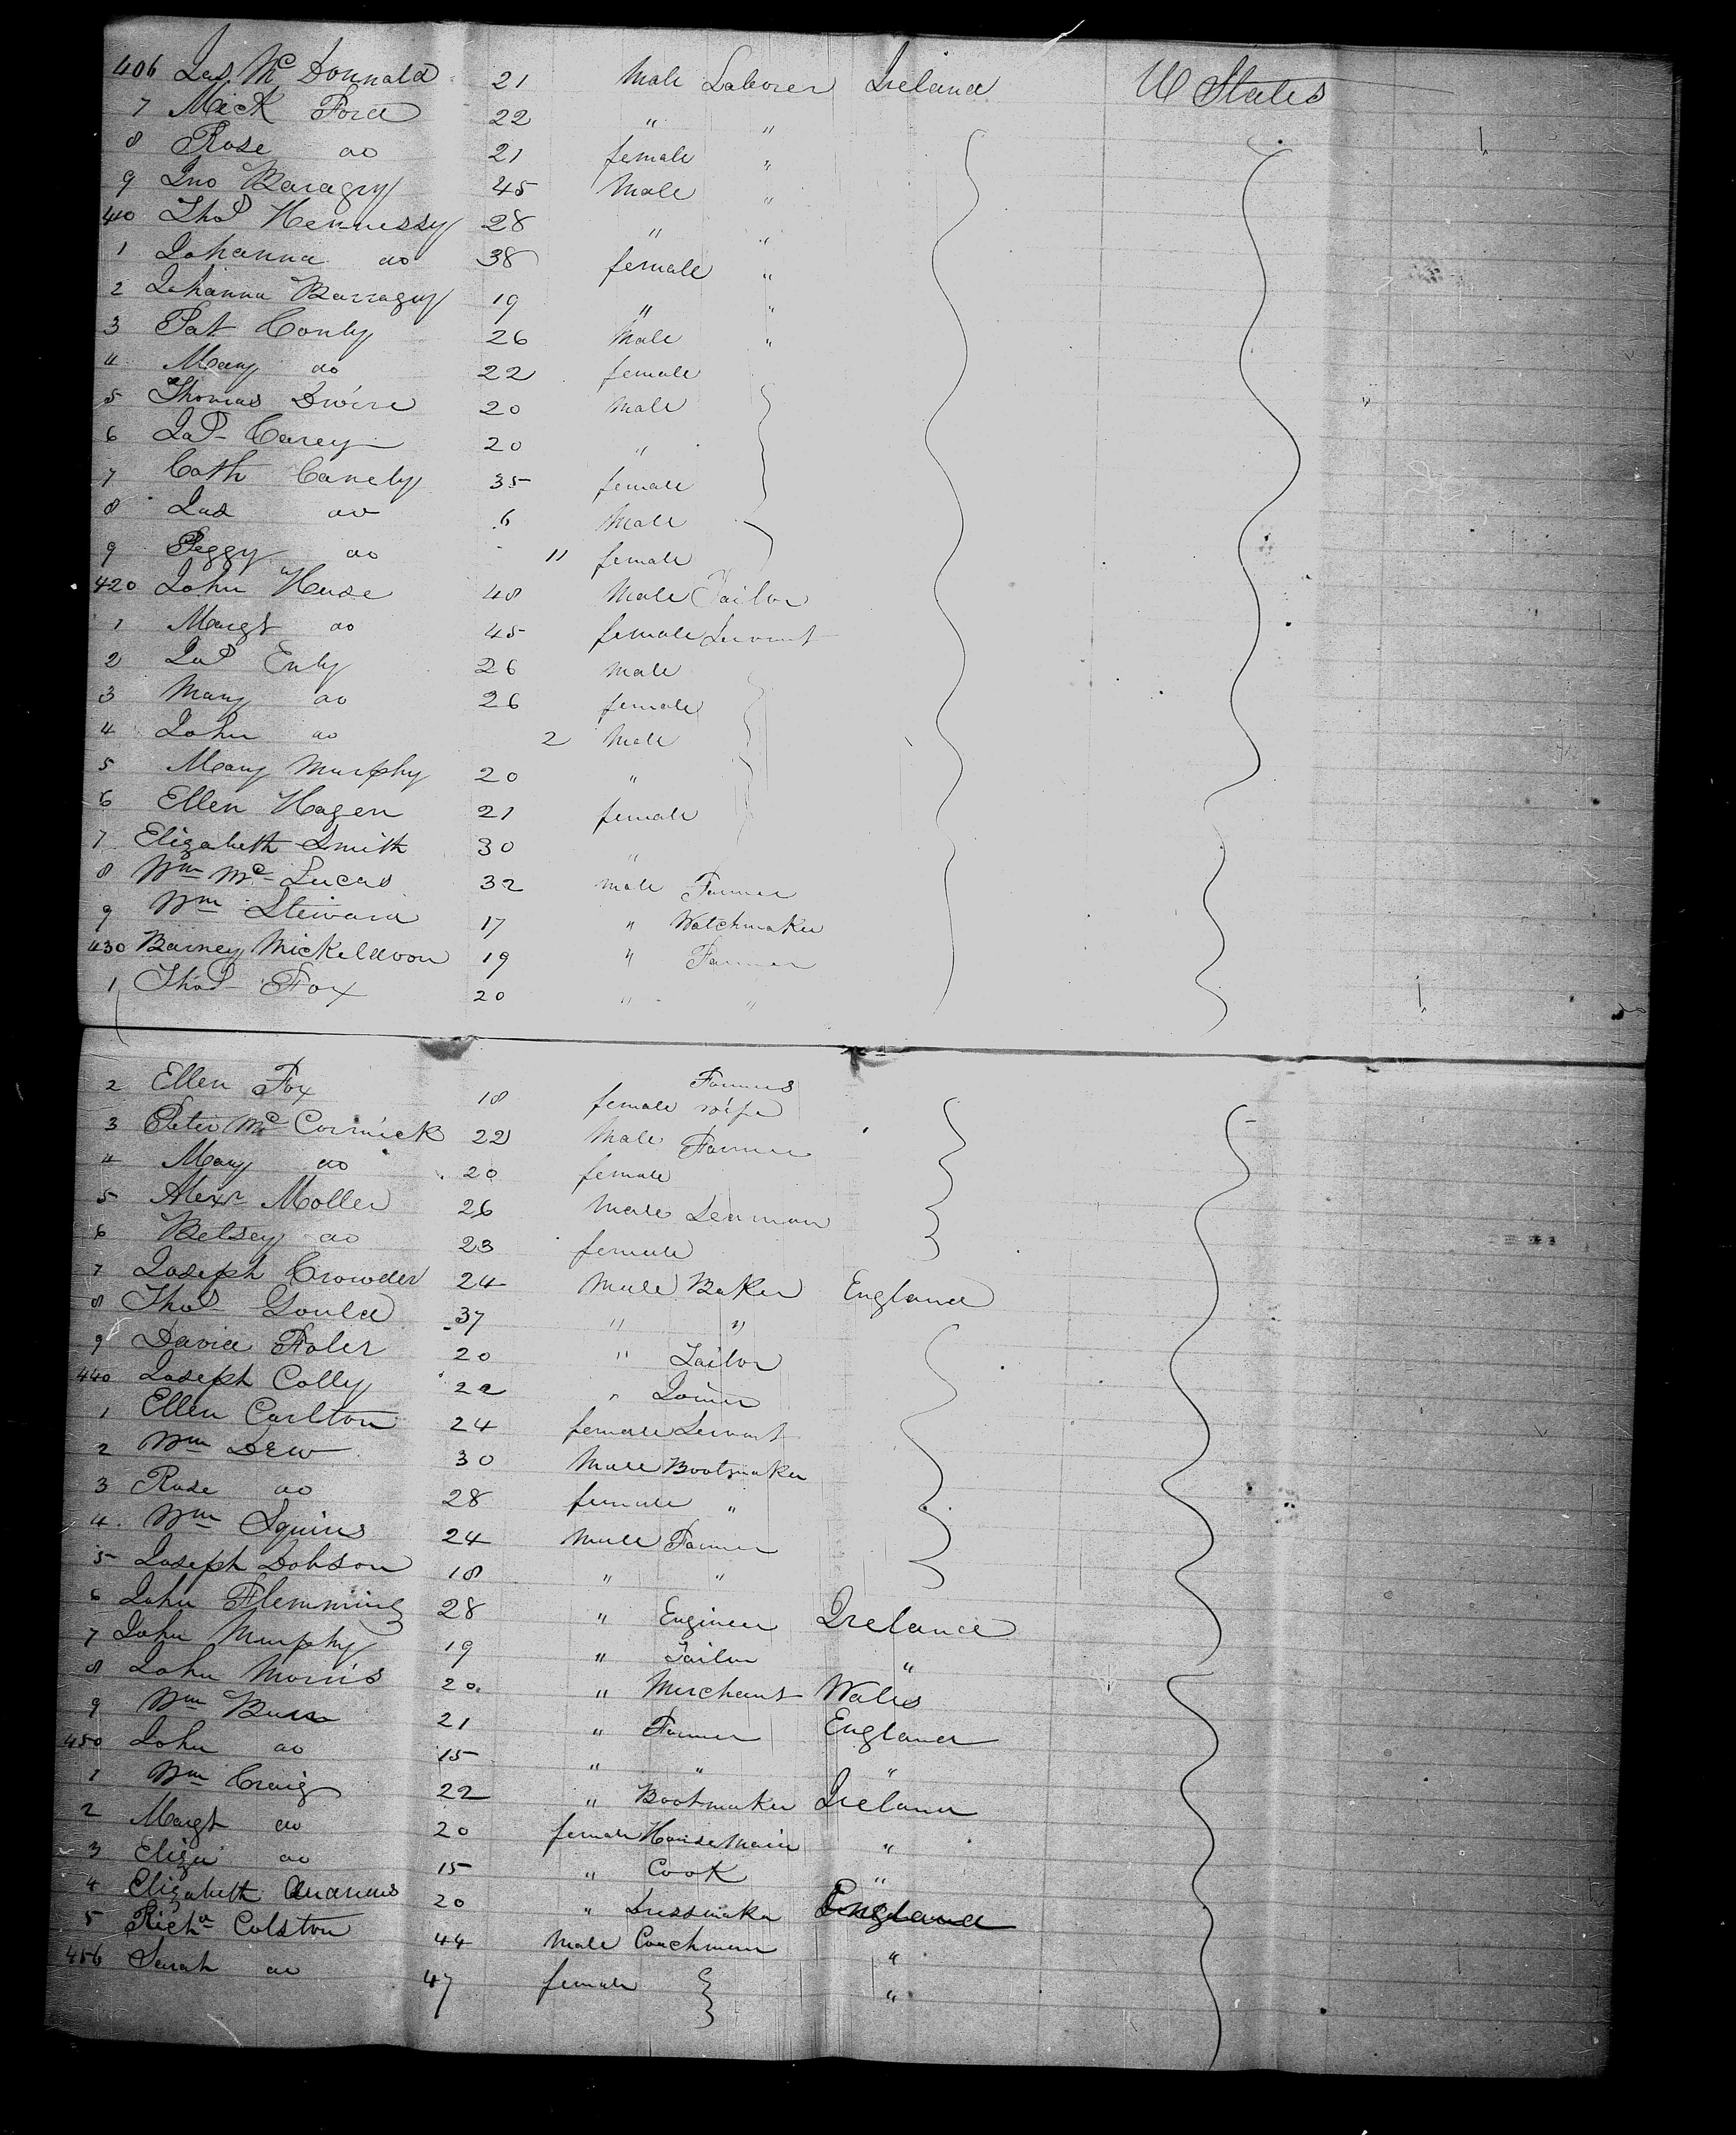 406 Jas. Mc Donnald 21 Male Laborer Ireland U States
7 Mick Ford 22 " "
8 Rose do 21 female "
9 Jno Baragry 45 Male "
410 Thos Hennessy 28 " "
1 Johanna do 38 female "
2 Johanna Barragry 19 " "
3 Pat Conly 26 Male "
4 Mary do 22 female
5 Thomas Dwire 20 Male
6 Jas Carey 20 "
7 Cath Canely 35 female
8 Jas do 6 Male
9 Peggy do 11 female
420 John Huse 48 Male Tailor
1 Margt do 45 female Servant
2 Jas Enly 26 Male
3 Mary do 26 female
4 John do 2 Male
5 Mary Murphy 20 "
6 Ellen Hagen 21 female
7 Elizabeth Smith 30 "
8 Wm Mc Lucas 32 male Farmer
9 Wm Steward 17 " Watchmaker
430 Barney Mickeldoon 19 " Farmer
1 Thos Fox 20 " "
2 Ellen Fox 18 female Farmers wife
3 Peter Mc Cormick 22 Male Farmer
4 Mary do 20 female
5 Alexr Moller 26 Male Seaman
6 Betsey do 23 female
7 Joseph Crowder 24 Male Baker England
8 Thos Gould 37 " "
9 David Foler 20 " Tailor
440 Joseph Colly 22 " Joiner
1 Ellen Carlton 24 female Servant
2 Wm Dew 30 Male Bootmaker
3 Rose do 28 female "
4 Wm Squires 24 Male Farmer
5 Joseph Dobson 18 " "
6 John Flemming 28 " Engineer Ireland
7 John Murphy 19 " Tailor "
8 John Morris 20 " Merchant Wales
9 Wm 21 " Farmer England
450 John do 15 " " "
1 Wm Craig 22 " Bootmaker Ireland
2 Margt do 20 female House Maid "
3 Eliza do 15 " Cook "
4 Elizabeth Andrews 20 " Dressmaker England
5 Richd Colston 44 Male Coachman "
456 Sarah do 47 female "